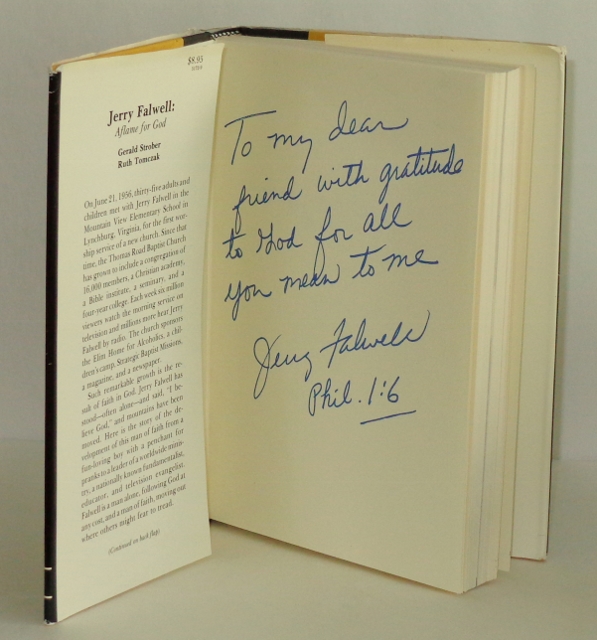 $8.95
Jerry Falwell:
Aflame for God
Gerald Strober
Ruth Tomczak
On June 21, 1956, thirty-five adults and
children met with Jerry Falwell in the
Mountain View Elementary School in
Lynchburg, Virginia, for the first wor-
ship service of a new church. Since that
time, the Thomas Road Baptist Church
has grown to include a congregation of
16,000 members, a Christian academy,
a Bible institute, a seminary, and a
four-year college. Each week six million
viewers watch the morning service on
television and millions more hear Jerry
Falwell by radio. The church sponsors
the Elim Home for Alcoholics, a chil-
dren's camp, Strategic Baptist Missions,
a magazine, and a newspaper.
Such remarkable growth is the re-
sult of faith in God. Jerry Falwell has
stood—often alone—and said, "I be-
lieve God," and mountains have been
moved. Here is the story of the de-
velopment of this man of faith from a
fun-loving boy with a penchant for
pranks to a leader of a worldwide minis-
try, a nationally known fundamentalist,
educator, and television evangelist.
Falwell is a man alone, following God at
any cost, and a man of faith, moving out
where others might fear to tread.
(Continued on back flap)
To my dear
friend with gratitude
to God for all
you mean to me
Jerry Falwell
Phil. 1:6